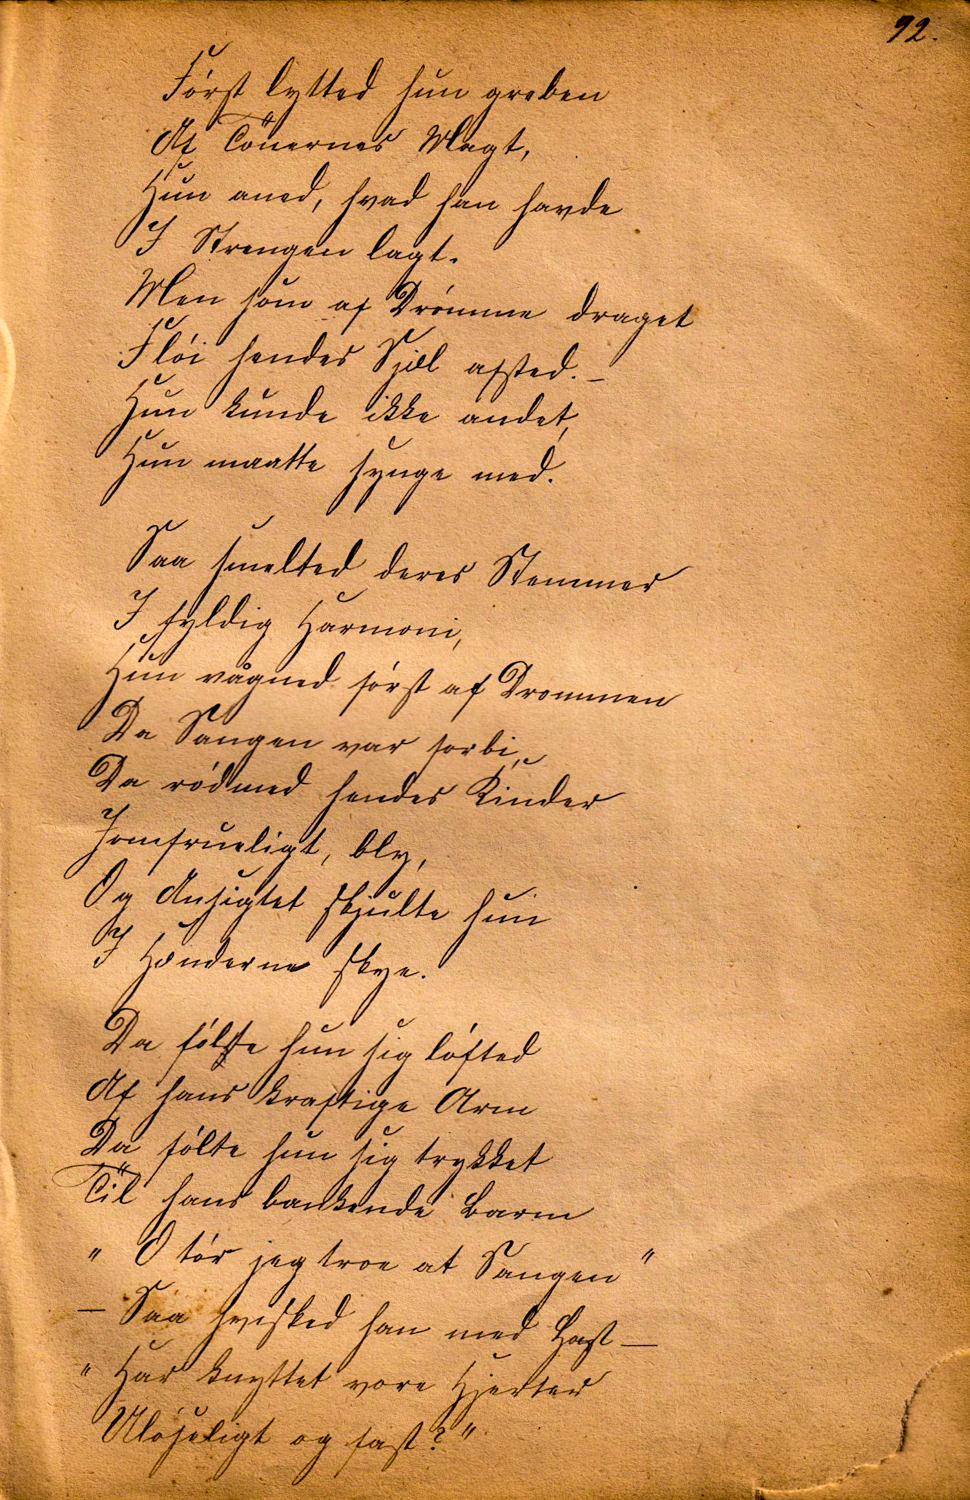 92.
Först lytted hun greben
Af Tönernes Magt,
Hun aned, hvad han havde
I Strengen lagt.
Men som af Drömme draget
Flöi hendes Sjæl afsted. –
Hun kunde ikke andet,
Hun maatte synge med.
Saa smelted deres Stemmer
I fyldig Harmoni,
Hun vågned först af Drommen
Da Sangen var forbi,
Da rödmed hendes Kinder
Jomfrueligt, bly,
Og Ansigtet skjulte hun
I Hænderne skye.
Da fölte hun sig löfted
Af hans kraftige Arm
Da fölte hun sig trykket
Til hans bankende Barm
" O tör jeg troe at Sangen "
– Saa hvisked han med Hast –
" Har knyttet vore Hjerter
Ulöseligt og fast? "